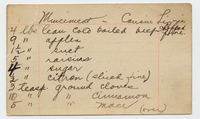 Mincemeat - Cousin
4 lbs lean cold boiled beef chopped
9 " apples
1 1/2 " suet
5 " raisins
4 " sugar
2 " citron (sliced fine)
3 teasp ground cloves
10 " " cinnamon
5 " " mace (over)